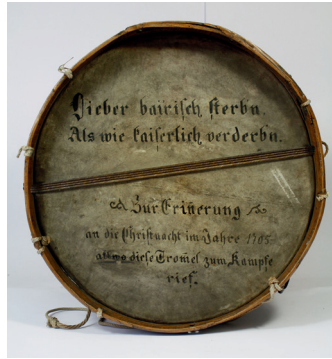 Lieber bairisch sterbn.
Als wie kaiserlich verderbn.
Zur Erin̄erung
an die Christnacht im Jahre 1705
als wo diese Trom̄el zum Kampfe
rief.